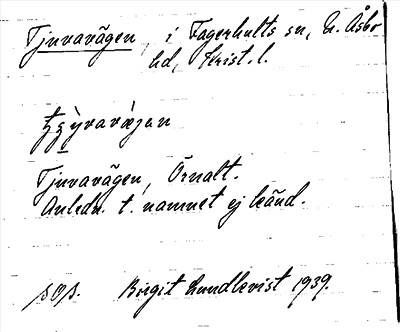 Tjuvavägen, i Fagerhults sn, N. Åsbo
hd, Krist. l.
Tjuvavägen, Örnalt.
Anledn. t. namnet ej känd.
Birgit Lundkvist 1939.